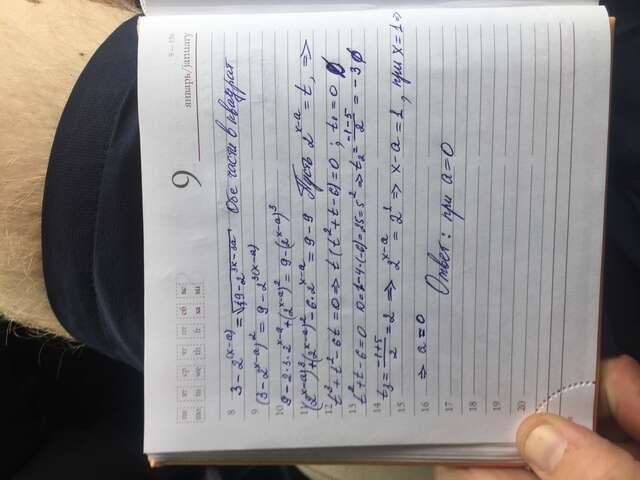 пн вт ср чт пт сб вс
mo tu we th fr sa su
9
9 — 356
январь/january
8
3 - 2^(x-a) = √(9 - 2^(3x-3a)) Обе части в квадрат
9
(3 - 2^(x-a))^2 = 9 - 2^(3(x-a))
10
9 - 2·3·2^(x-a) + (2^(x-a))^2 = 9 - (2^(x-a))^3
11
(2^(x-a))^3 + (2^(x-a))^2 - 6·2^(x-a) = 9 - 9 Пусть 2^(x-a) = t, ⇒
12
t^3 + t^2 - 6t = 0 ⇒ t(t^2 + t - 6) = 0 ; t₁ = 0 ∅
13
t^2 + t - 6 = 0 D = 1 - 4·(-6) = 25 = 5^2 ⇒ t₂ = (-1-5)/2 = -3 ∅
14
t₃ = (-1+5)/2 = 2 ⇒ 2^(x-a) = 2^1 ⇒ x - a = 1, при x = 1 ⇒
15
16
⇒ a = 0
17
Ответ: при a = 0
18
19
20